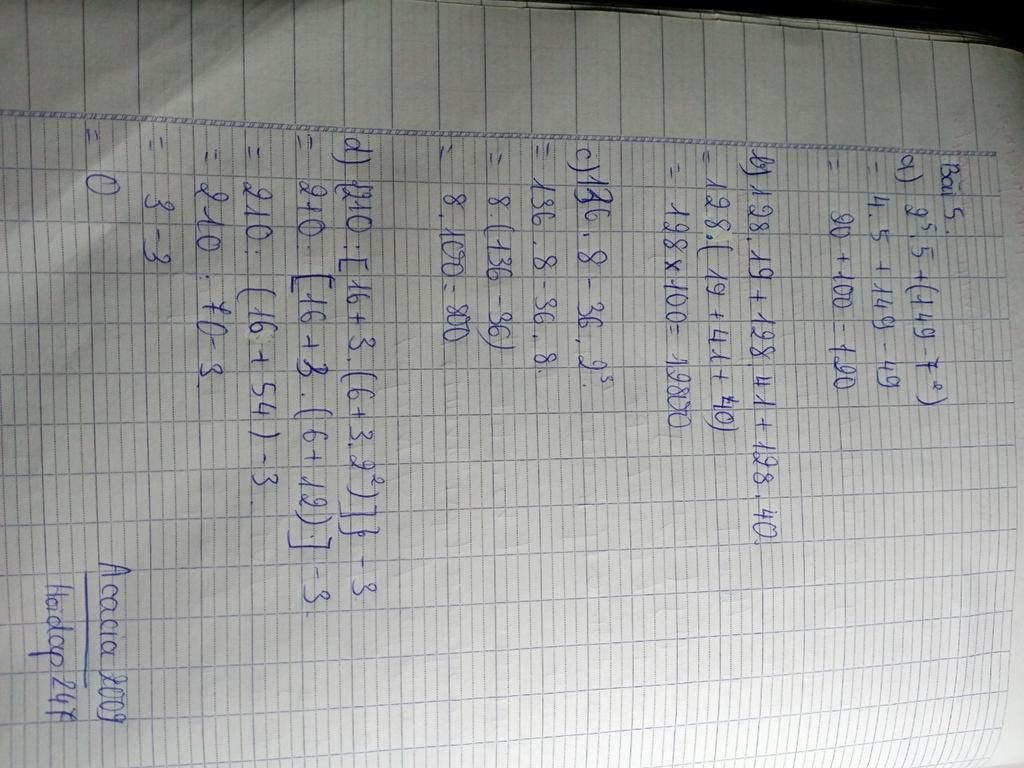 Bài 5.
a) 2⁵.5 + (149 - 7²)
= 4.5 + 149 - 49
= 20 + 100 = 120
b) 128.19 + 128.41 + 128.40.
= 128.(19 + 41 + 40)
= 128 x 100 = 12800
c) 136.8 - 36.2³.
= 136.8 - 36.8.
= 8.(136 - 36)
= 8.100 = 800
d) 210:[16 + 3.(6 + 3.2²)]} - 3.
= 210:[16 + 3.(6 + 12)] - 3.
= 210:(16 + 54) - 3.
= 210:70 - 3.
= 3 - 3
= 0
Acacia 2009
Hoidap 247